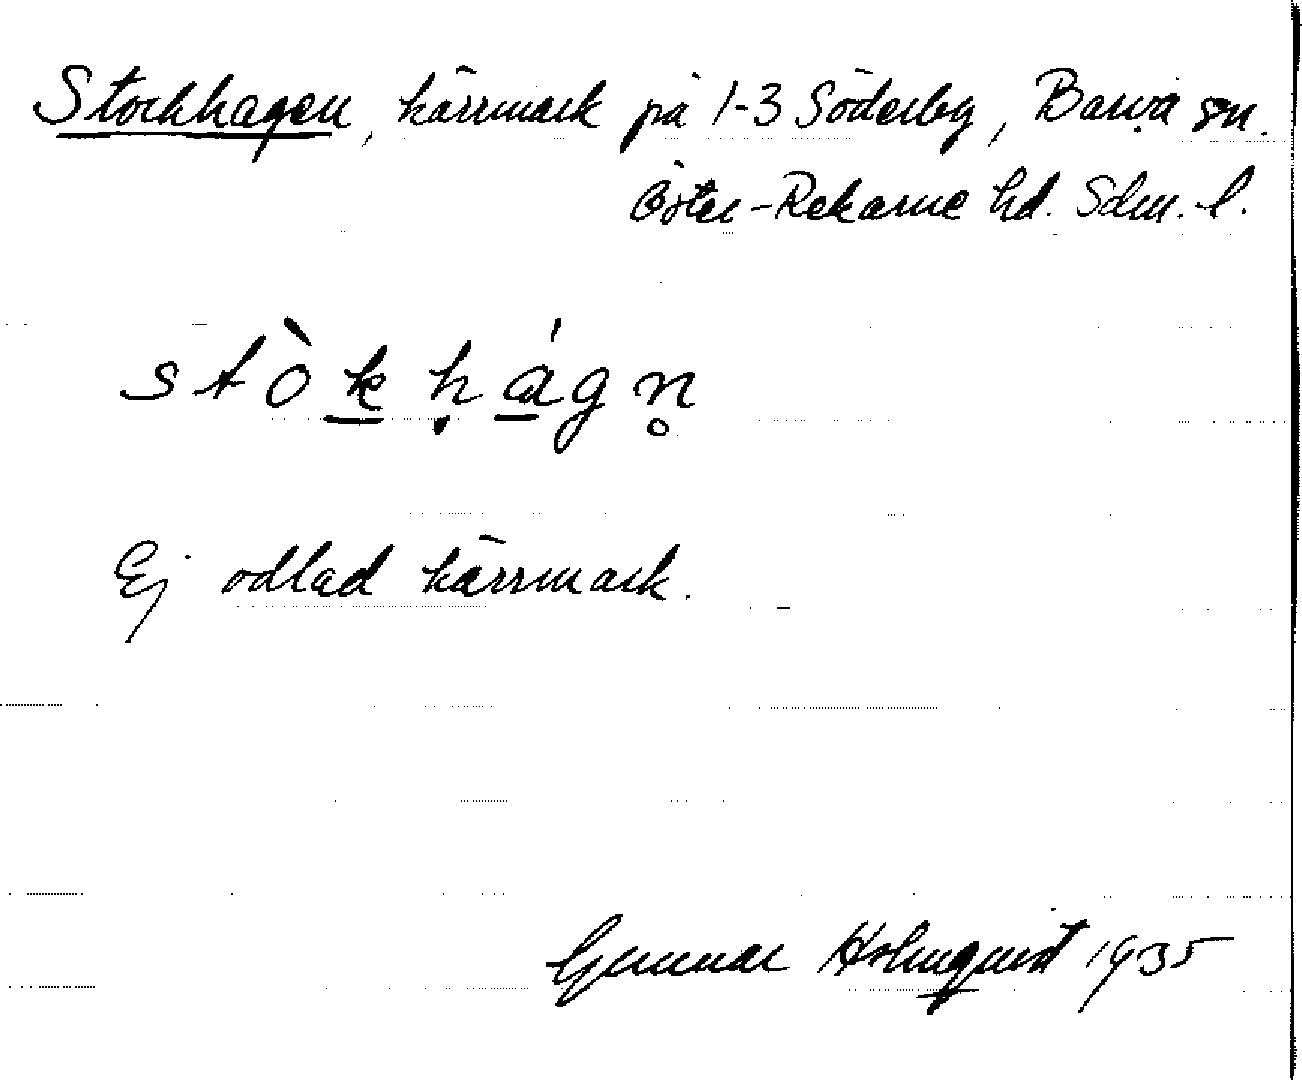 Stockhagen, kärrmark på 1-3 Söderby, Barva sn.
Öster-Rekarne hd. Sdm. l.
stòk̲ḥá̲gn̥
Ej odlad kärrmark.
Gunnar Holmquist 1935